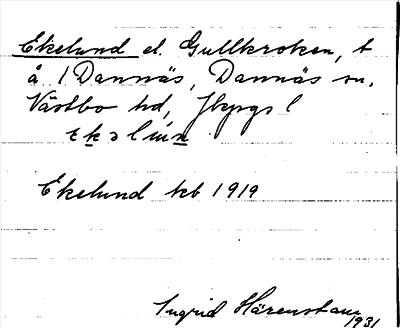 Ekelund el. Gullkroken, t
å 1 Dannäs, Dannäs sn.
Västbo hd, Jkpgs l
Ekelund kb 1919
Ingrid Härenstam
1931